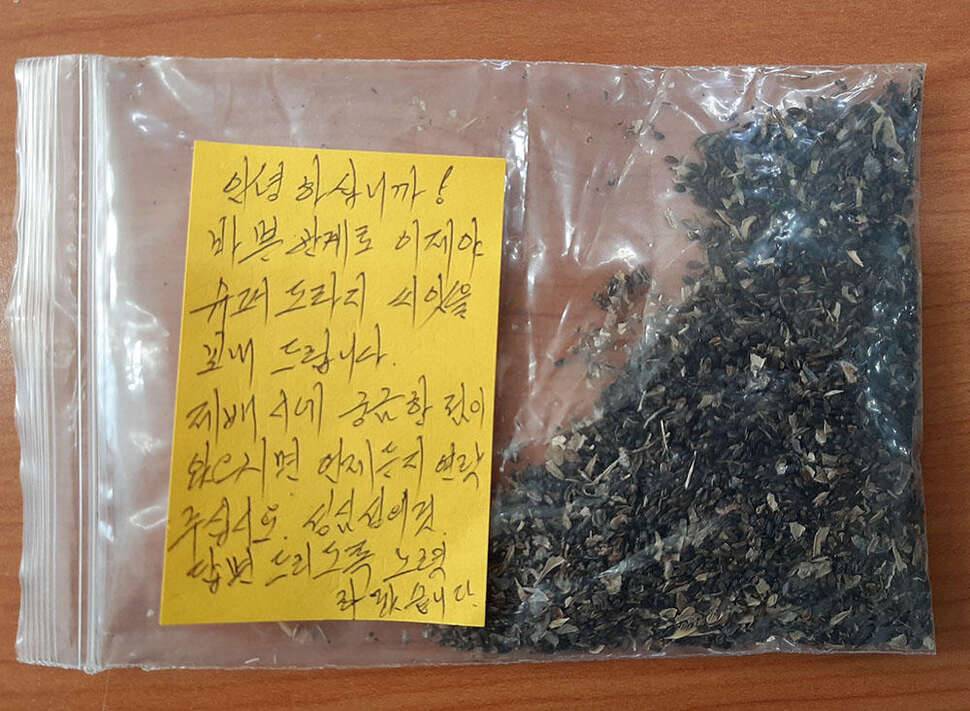 안녕하십니까!
바쁜 관계로 이제야
슈퍼도라지 씨앗을
보내 드립니다.
재배시에 궁금한 점이
있으시면 언제든지 연락
주십시요. 성심성이껏
답변 드리도록 노력
하겠습니다.